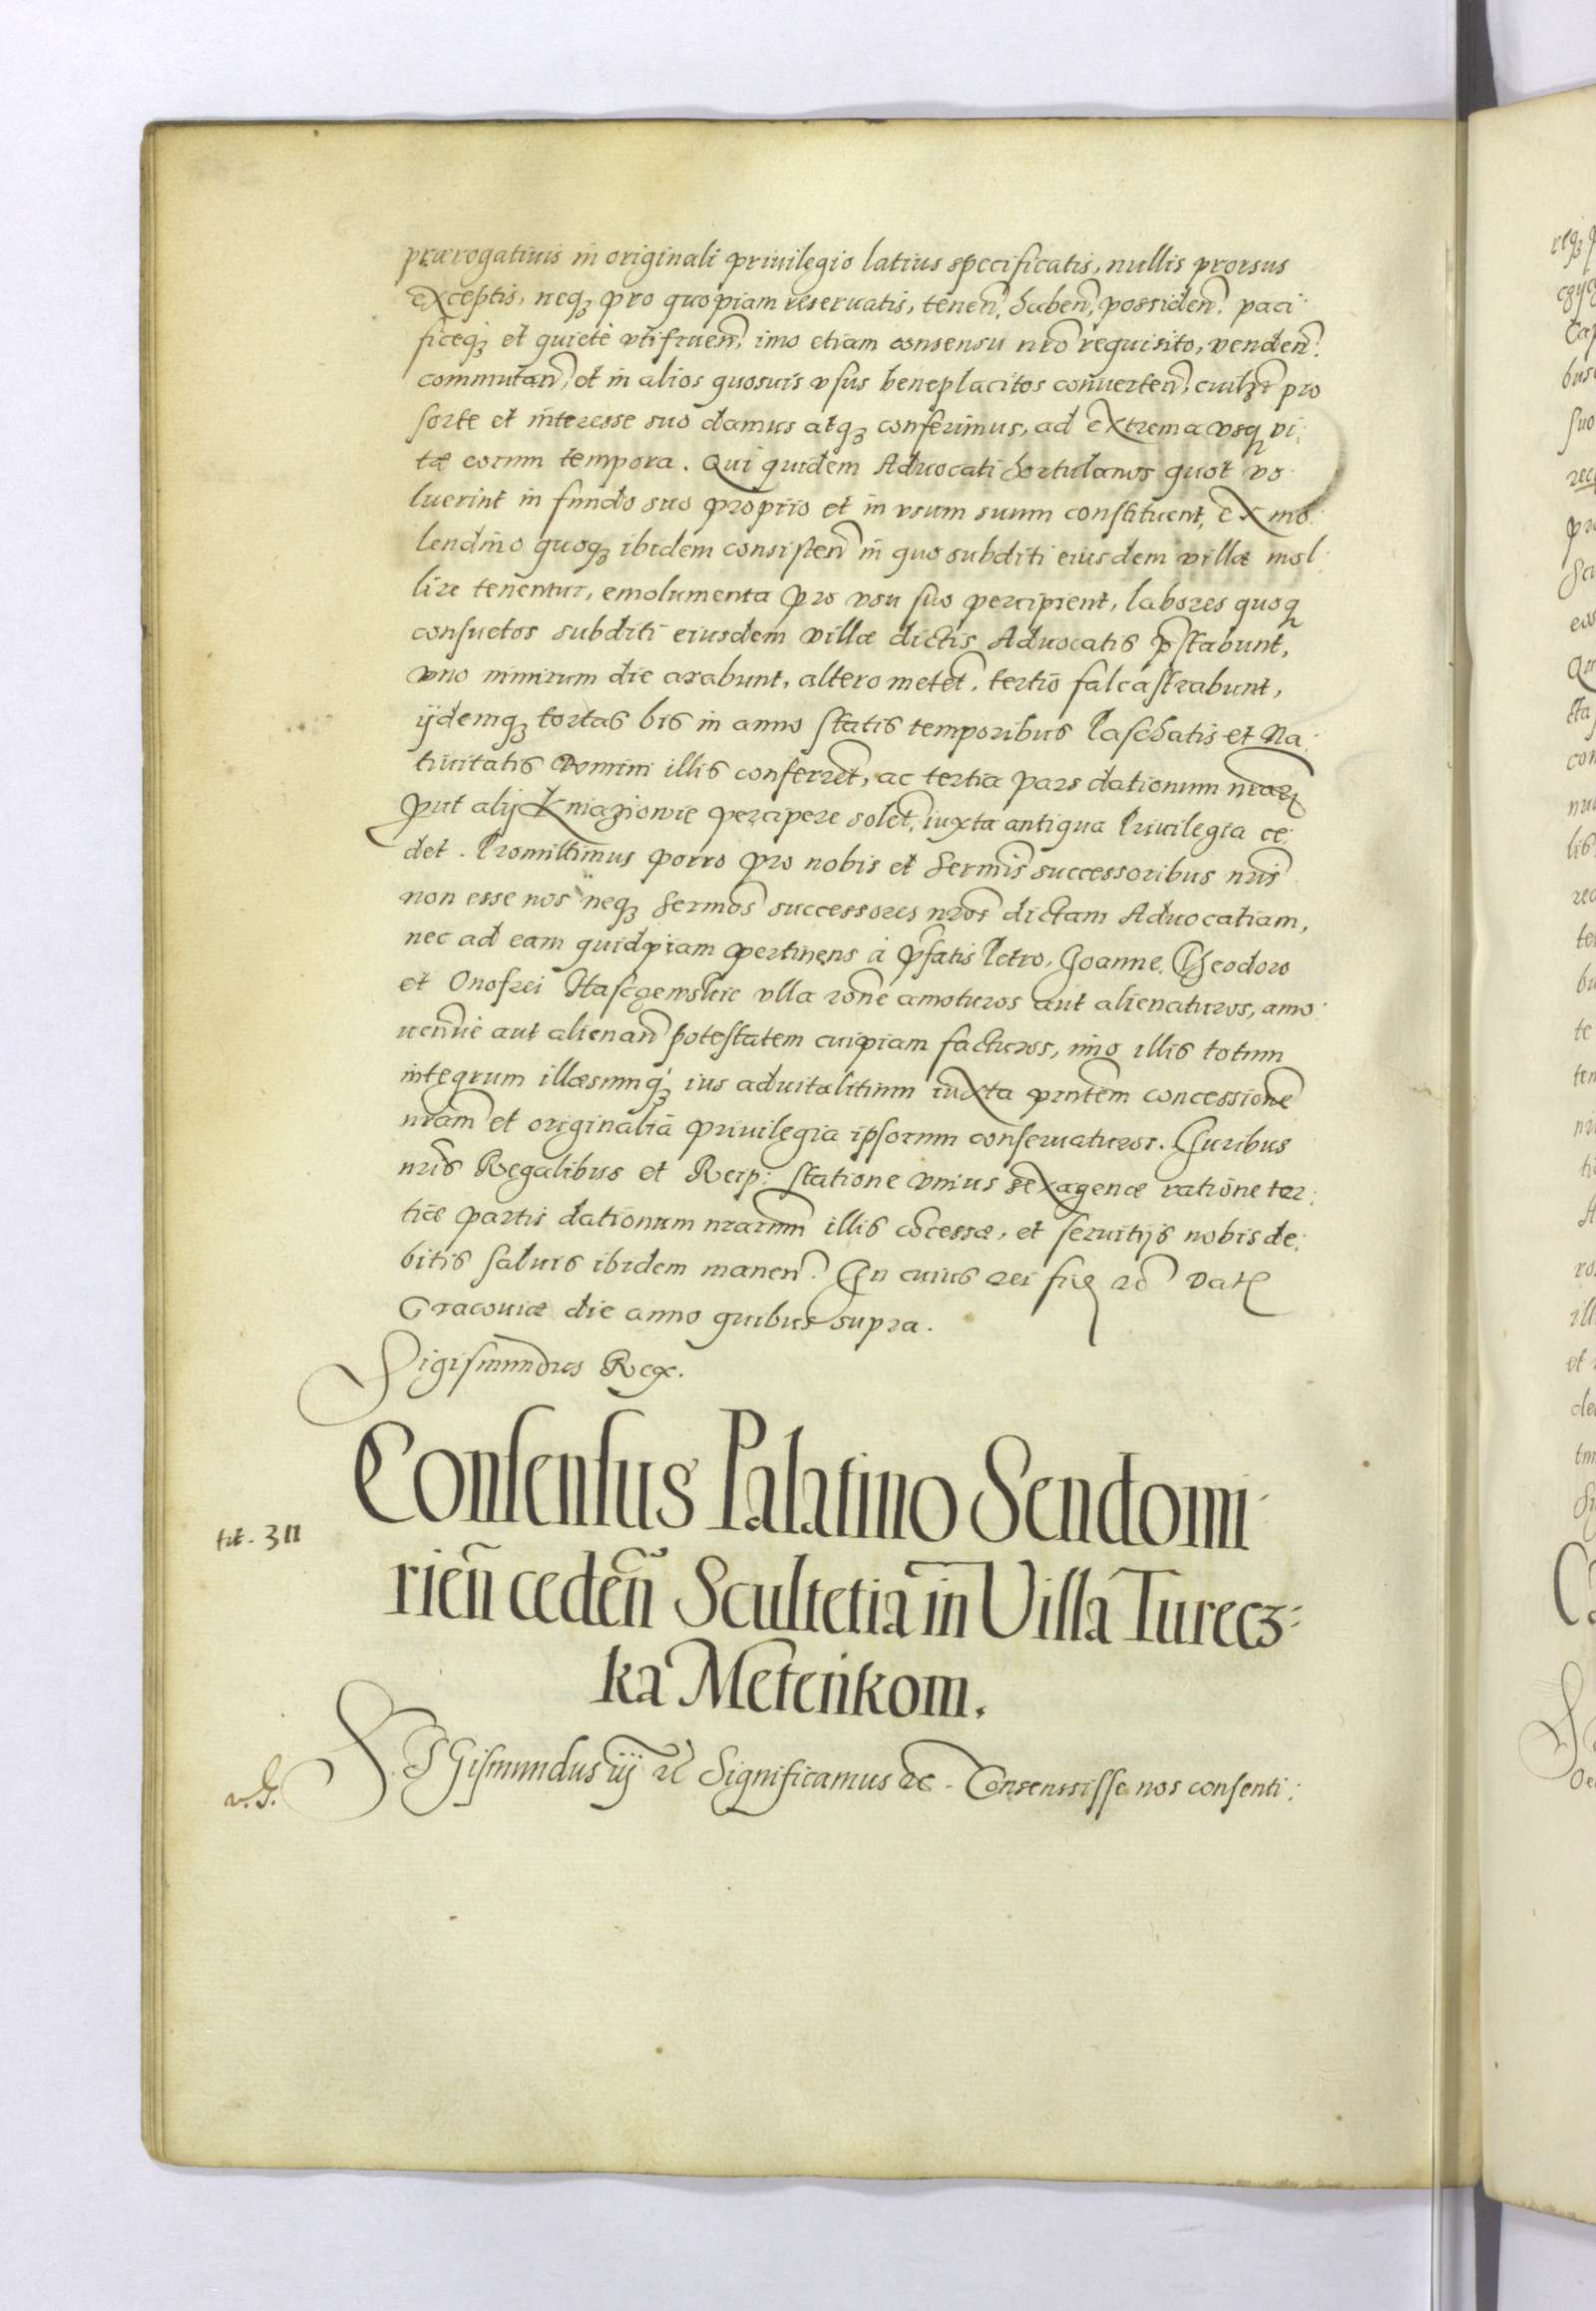 prærogatiuis in originali priuilegio latius specificatis, nullis prorsus
exceptis, neqꝫ pro quopiam reseruatis, tenen̄, haben̄, possiden̄. paci
ficeqꝫ et quietè vtifruen̄, imo etiam consensu nrō requisito, venden̄.
commutan̄, et in alios quosuis vsus beneplacitos conuerten̄, pro
sorte et interesse suo damus atqꝫ conferimus, ad extrema vsqꝫ vi:
tæ eorum tempora. Qui quidem Aduocati hortulanos quot vo
luerint in fundo suo proprio et in vsum suum constituent, ex mo:
lendino quoqꝫ ibidem consisten̄ in quo subditi eiusdem villæ mol
lire tenentur, emolumenta pro vsu suo percipient, labores quoqꝫ
consuetos subditi eiusdem villæ dictis Aduocatis p̄stabunt,
vno nimirum die arabunt, altero metet̄, tertio falcastrabunt,
ijdemqꝫ tortas bis in anno statis temporibus Paschatis et Na:
tiuitatis Domini illis conferret̄, ac tertia pars dationum nrarꝫ
put alij Kniaziowie percipere solet̄, iuxta antiqua Priuilegia ce:
det. Promittimus porro pro nobis et Sermis̄ successoribus nrīs
non esse nos neqꝫ Sermos̄ successores nrōs dictam Aduocatiam,
nec ad eam quidpiam pertinens à p̄fatis Petro, Joanne, Theodoro
et Onofrei vlla rōne amoturos aut alienaturos, amo:
uen̄ue aut alienan̄ potestatem cuipiam facturos, imo illis totum
integrum illæsumqꝫ ius aduitalitium iuxta pn̄tem concessione̅
nrām et originalia priuilegia ipsorum conseruaturos. Juribus
nrīs Regalibus et Reip: statione vnius sexagenæ ratione ter:
tiæ partis dationum nrarum̄ illis cōcessæ, et seruitijs nobis de:
bitis saluis ibidem manen̄. In cuius rei fiꝫ rc̄ Datꝫ
Cracouiæ die anno quibus supra.
Sigismundus Rex.
Consensus Palatino Sendomi
rien̄ ceden̄ Scultetia in Villa Turecz:
ka Metenkom.
tit. 311
SIGismundus iij rc̄ Significamus rc̄. Consensisse nos consenti: